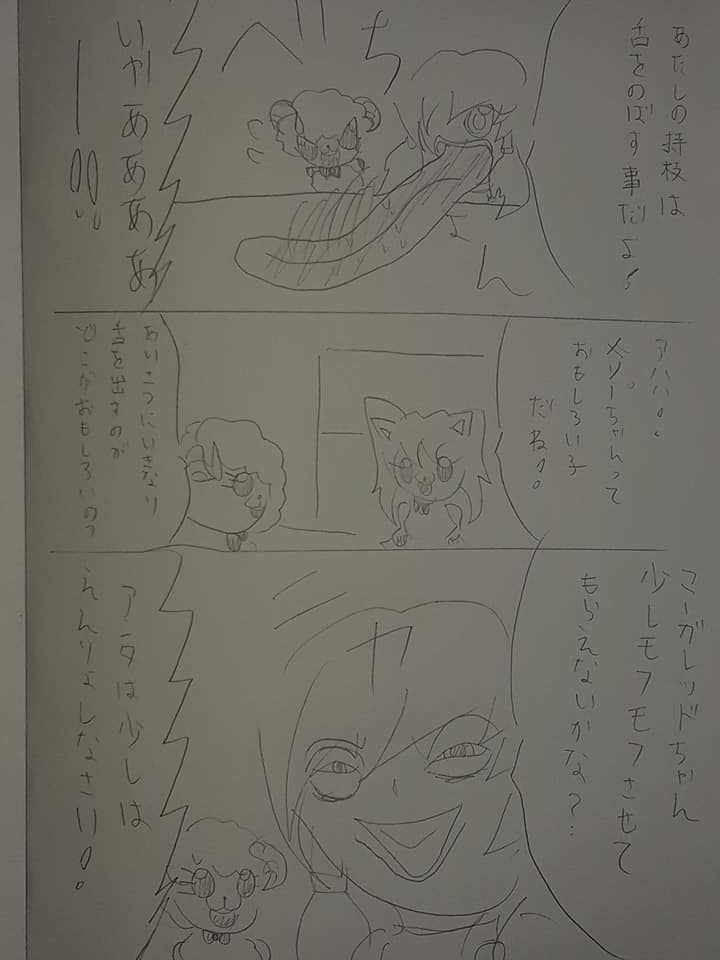 あたしの持技は
舌をのばす事だよ!
べちょん
いやああああ
ー!!
アハハ。
メリーちゃんって
おもしろい子
だね!
あいさつにいきなり
舌を出すのが
どこがおもしろいの?
マーガレッドちゃん
少しモフモフさせて
もらえないかな?
アンタは少しは
えんりょしなさい!